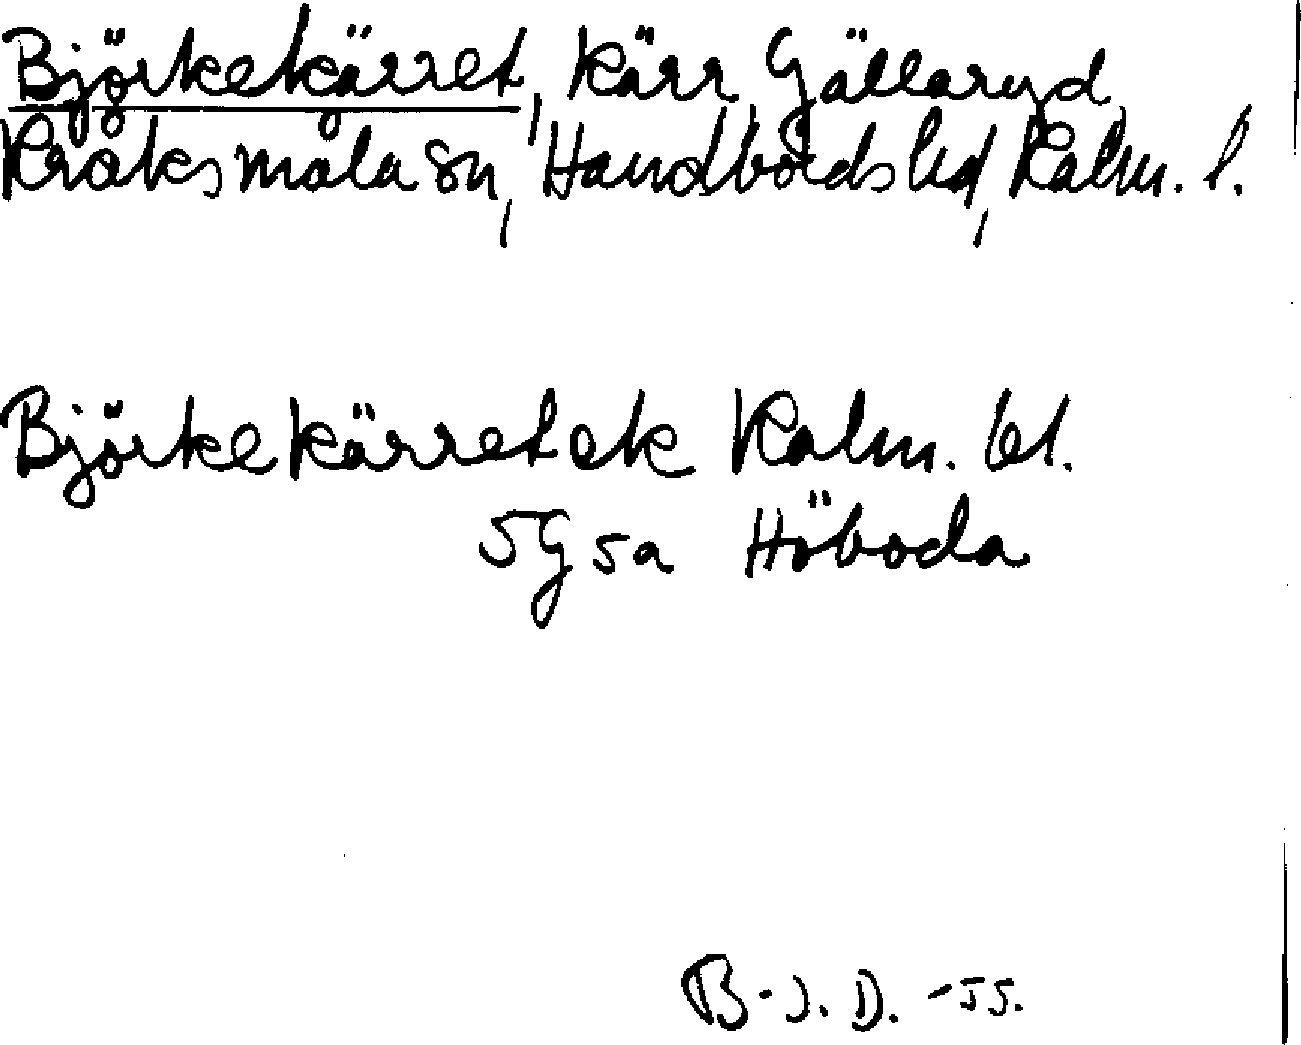 Björkekärret, kärr Gällaryd,
Kråksmåla sn, Handbörds hd, Kalm. l.
Björkekärret ek Kalm. bl.
5G5a Höboda
B-J. D. -55.